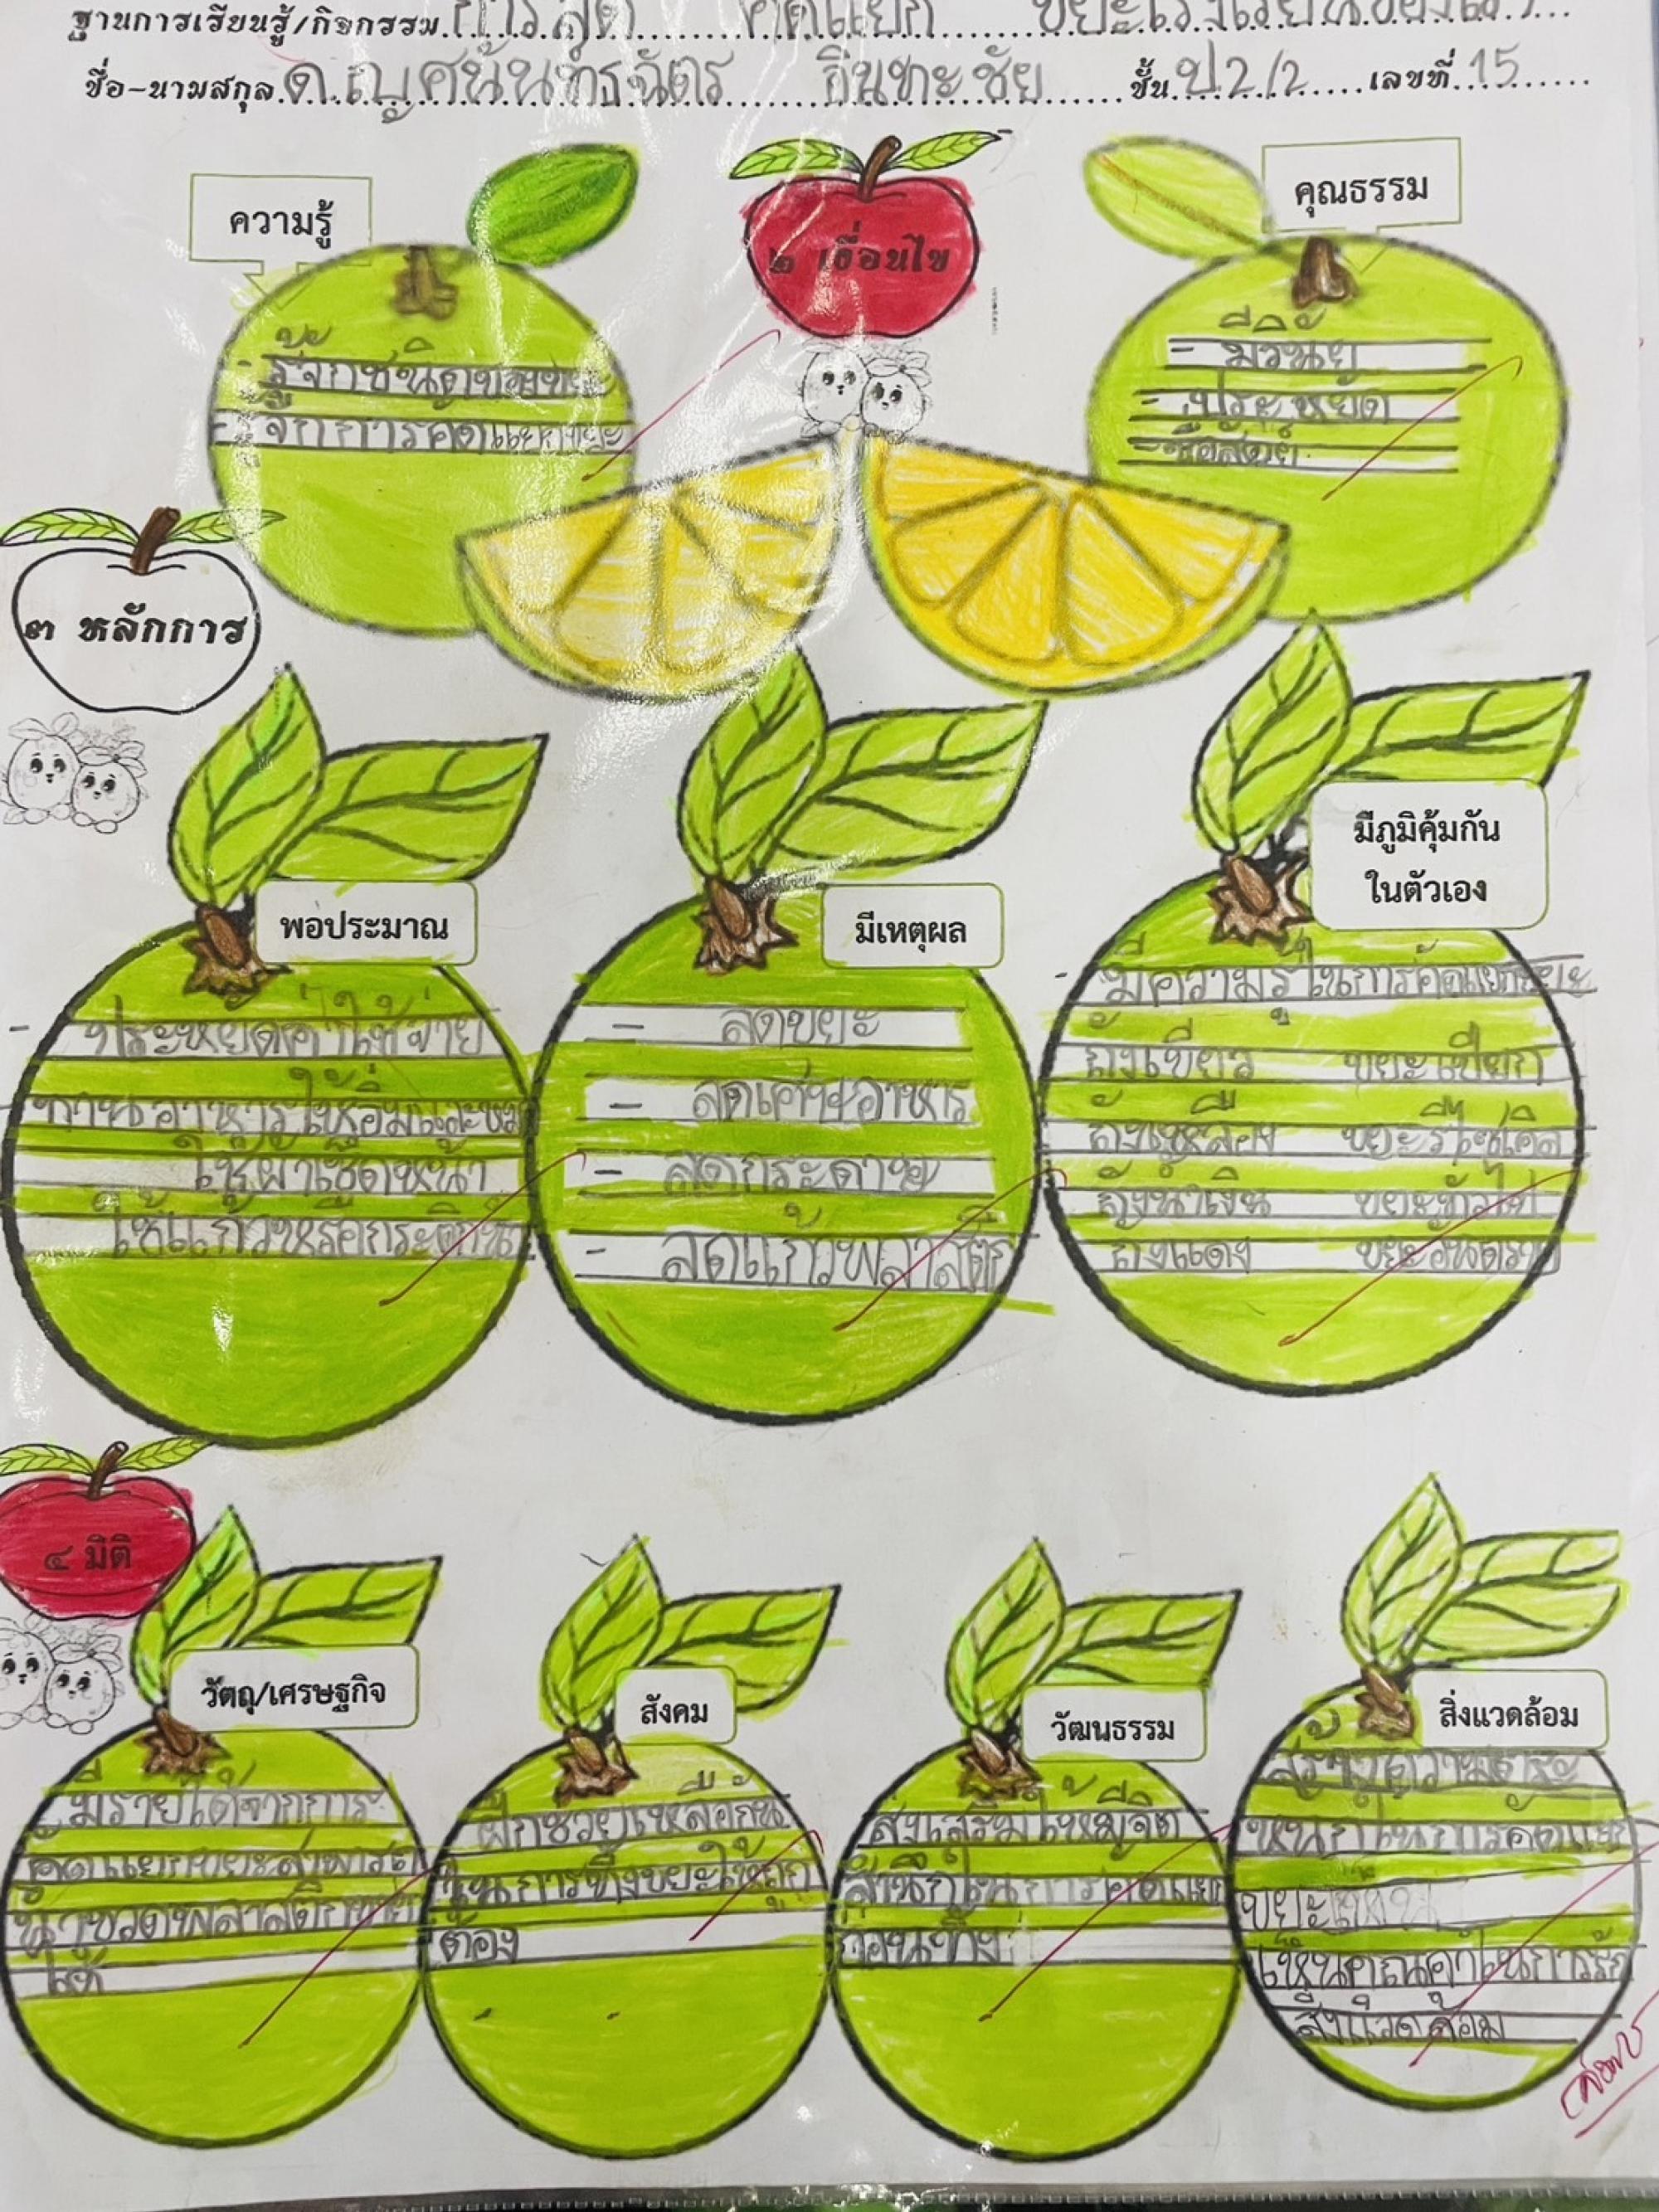 ฐานการเรียนรู้/กิจกรรม การลด คัดแยก ขยะโรงเรียนของเรา
ชื่อ-นามสกุล ด.ญ ศนันท์ธฉัตร อินทะชัย ชั้น ป2/2 เลขที่ 15
ความรู้
๒ เงื่อนไข
คุณธรรม
- รู้จักชนิดของขยะ
- รู้จักการคัดแยกขยะ
- มีวินัย
- ประหยัด
- ซื่อสัตย์
๓ หลักการ
พอประมาณ
- ประหยัดค่าใช้จ่าย
ทานอาหารให้อิ่มและ
ใช้ผ้าเช็ดหน้า
ใช้แก้วหรือกระติกน้ำ
มีเหตุผล
- ลดขยะ
- ลดเศษอาหาร
- ลดกระดาษ
- ลดแก้วพลาสติก
มีภูมิคุ้มกัน
ในตัวเอง
- มีความรู้ในการคัดแยกขยะ
ถังเขียว ขยะเปียก
ถังเหลือง ขยะรีไซเคิล
ถังน้ำเงิน ขยะทั่วไป
ถังแดง ขยะอันตราย
๔ มิติ
วัตถุ/เศรษฐกิจ
มีรายได้จากการ
คัดแยกขยะสามารถ
นำขวดพลาสติกขาย
ได้
สังคม
ฝึกช่วยเหลือกัน
ในการทิ้งขยะให้ถูก
ต้อง
วัฒนธรรม
ส่งเสริมให้มีจิต
สำนึกในการคัดแยก
ก่อนทิ้ง
สิ่งแวดล้อม
สร้างความตระ
หนักในการคัดแยก
ขยะ
เห็นคุณค่าในการรัก
สิ่งแวดล้อม